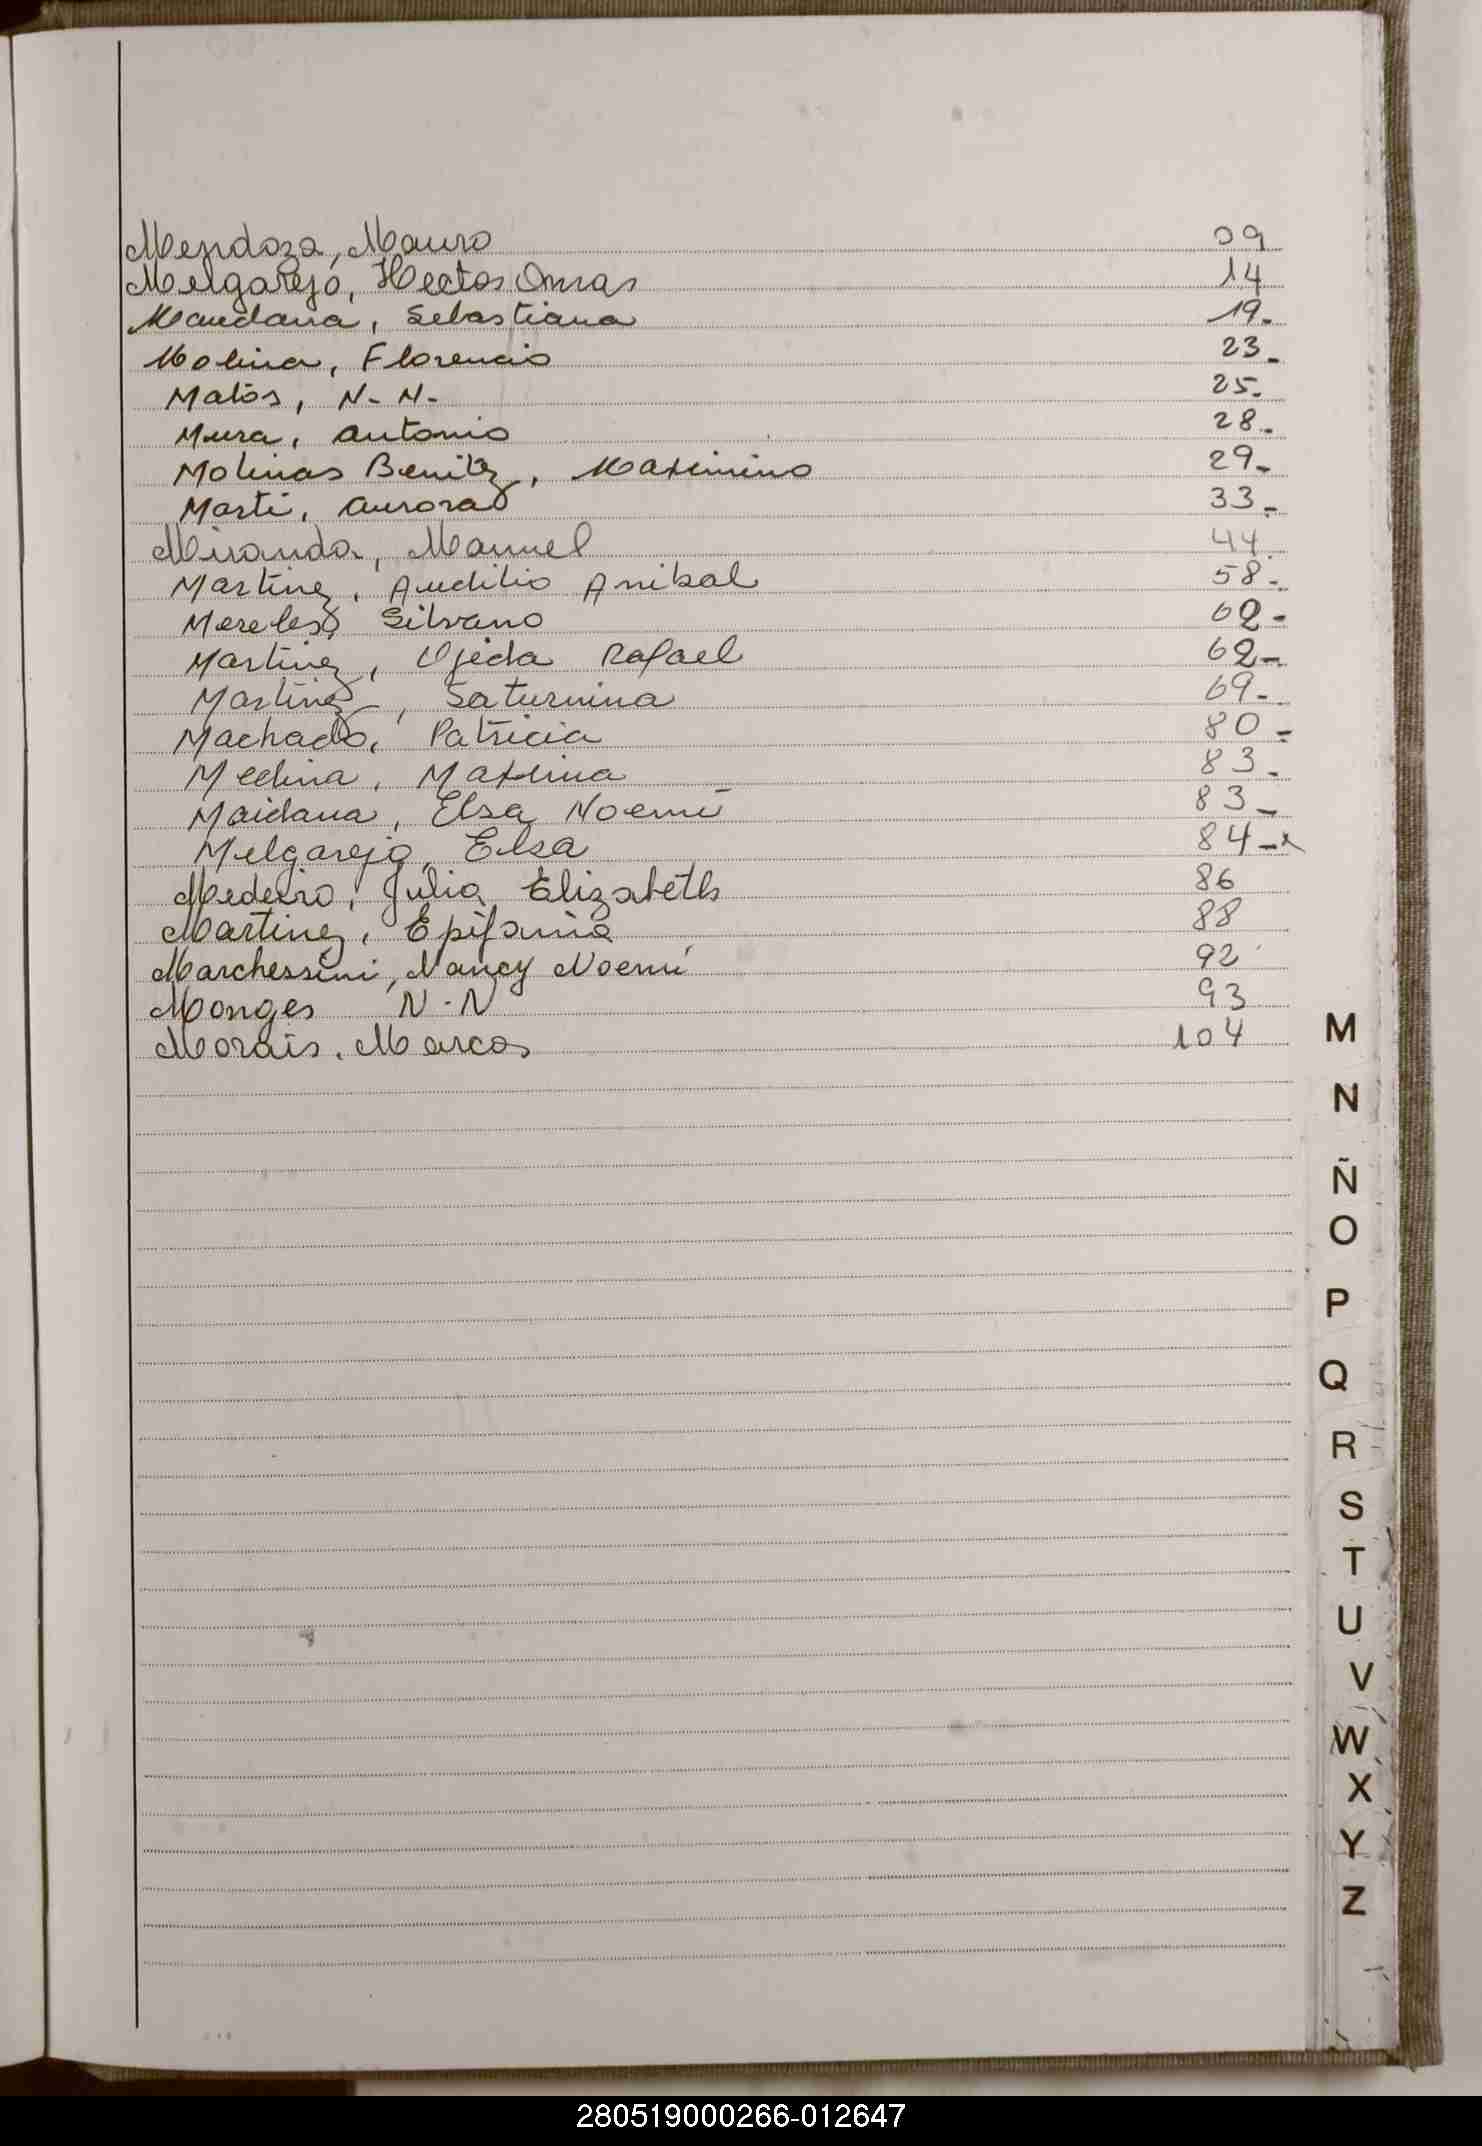 Mendoza, Mauro 09
Melgarejo, Hector Omar 14
Maudana, Sebastiana 19.
Molina, Florencio 23.
Matos, N- N- 25.
Mura, Antonio 28.
Molinas Benitez, Maximino 29.
Marti, Aurora 33.
Miranda, Manuel 44
Martinez, Audilio Anibal 58.
Mereles, Silvano 62.
Martinez, Ojeda Rafael 62-
Martinez, Saturnina 69-
Machado, Patricia 80-
Medina, Maxima 83.
Maidana, Elsa Noemi 83-
Melgarejo, Elsa 84-x
Medeiro, Julia Elizabeth 86
Martinez, Epifania 88
Marchessini, Nancy Noemi 92
Monges N-N 93
Morais, Marcos 104
M
N
Ñ
O
P
Q
R
S
T
U
V
W
X
Y
Z
280519000266-012647